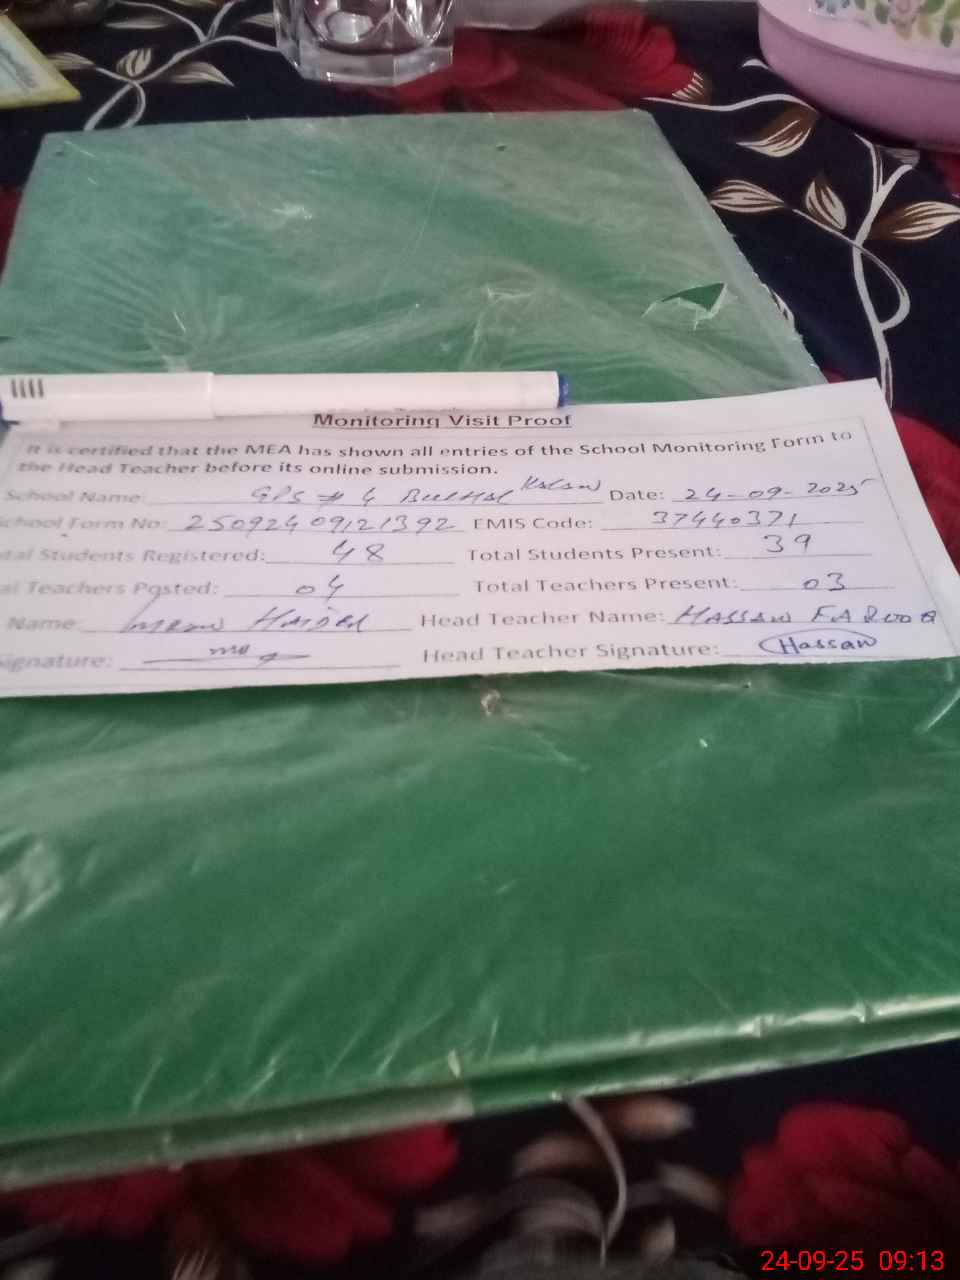 Monitoring Visit Proof
It is certified that the MEA has shown all entries of the School Monitoring Form to
the Head Teacher before its online submission.
School Name: GPS # 4 Kalan Date: 24-09-2025
School Form No: 25092409121392 EMIS Code: 37440371
tal Students Registered: 48 Total Students Present: 39
al Teachers Posted: 04 Total Teachers Present: 03
Name: Haider Head Teacher Name: HASSAN FAROOQ
Signature: Head Teacher Signature: Hassan
24-09-25 09:13